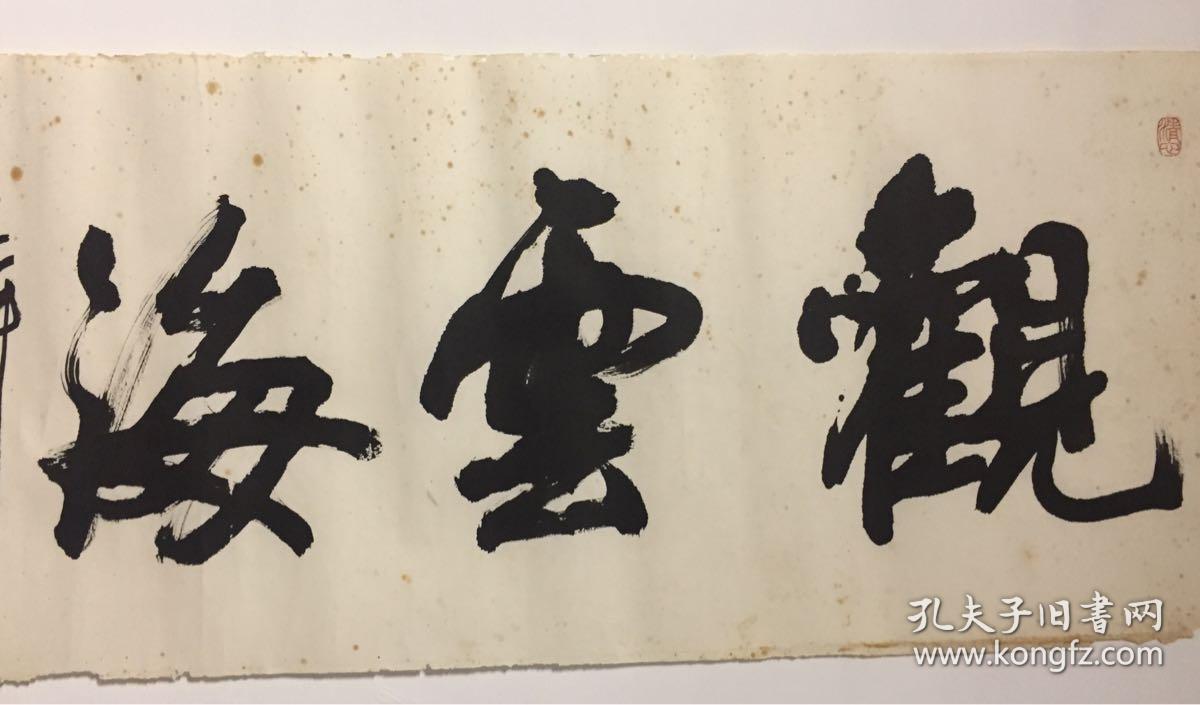 觀雲海
清心
孔夫子旧书网
www.kongfz.com